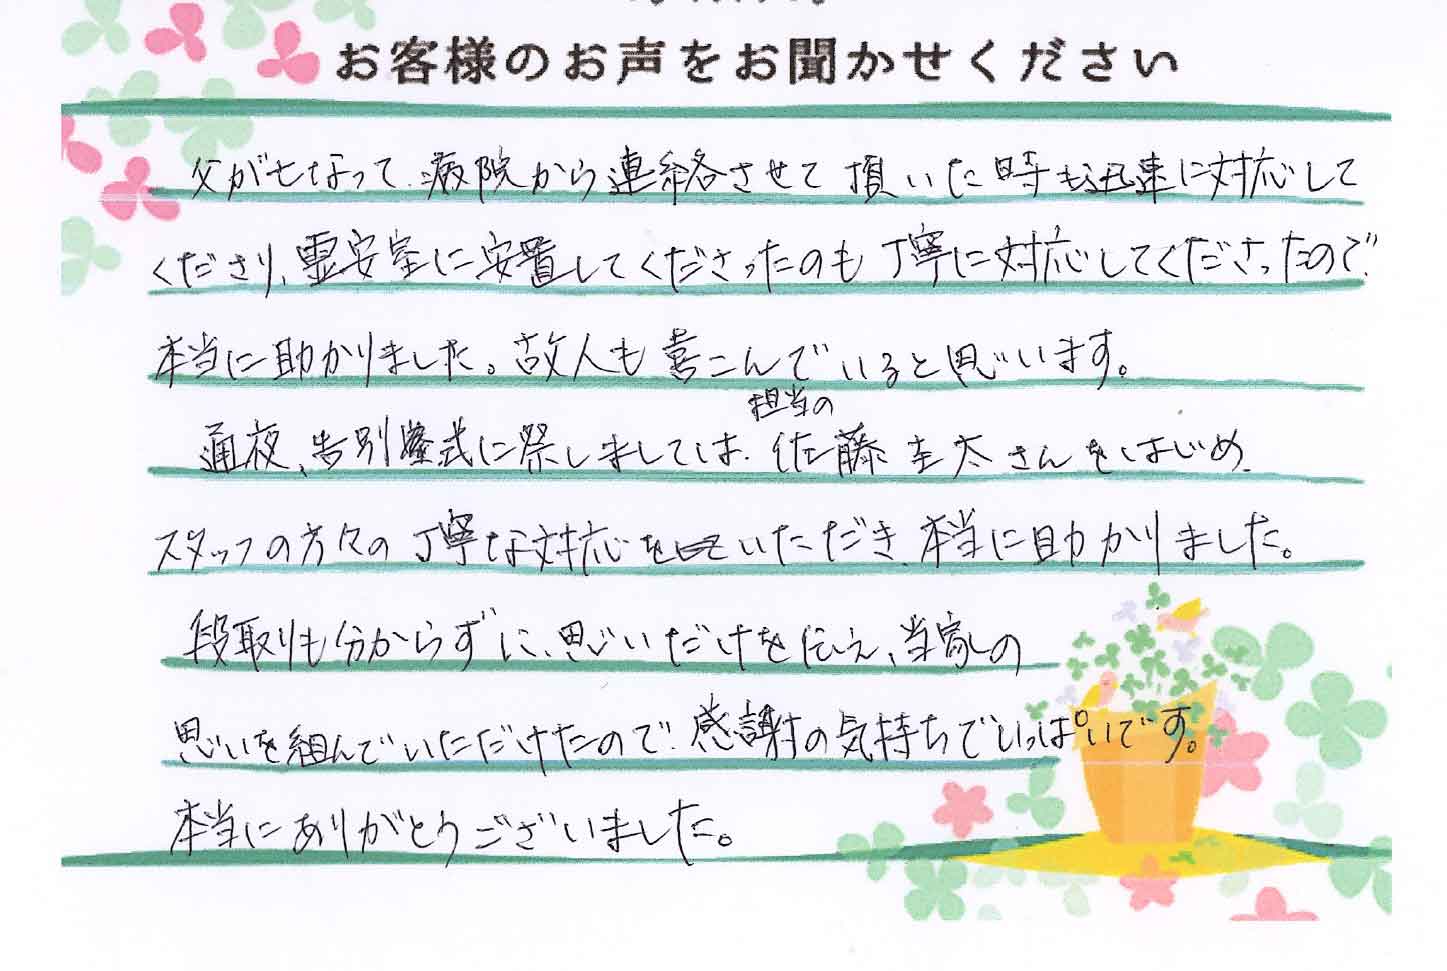 お客様のお声をお聞かせください
父が亡なって、病院から連絡させて頂いた時も迅速に対応して
くださり、霊安室に安置してくださったのも丁寧に対応してくださったので、
本当に助かりました。故人も喜こんでいると思います。
担当の
通夜、告別隆式に祭しましては、佐藤圭太さんをはじめ、
スタッフの方々の丁寧な対応をいただき、本当に助かりました。
段取りも分からずに、思いだけを伝え、当家の
思いを組んでいただけたので、感謝の気持ちでいっぱいです。
本当にありがとうございました。